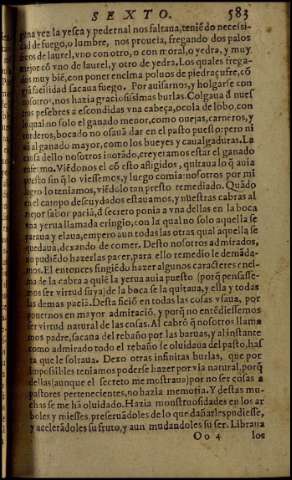 SEXTO. 583
vna vez la yesca y pedernal nos faltaua, teniēdo necesi-
dad de fuego, o lumbre, nos proueia, fregando dos palos
secos de laurel, vno con otro, o con moral, o yedra, y muy
mejor cō vno de laurel, y otro de yedra. Los quales frega-
dos muy biē, con poner encima poluos de piedraçufre, cō
grā facilidad sacaua fuego. Por auisarnos, y holgarse con
nosotros, nos hazia graciosissimas burlas. Colgaua d nues
tros pesebres a escondidas vna cabeça, o cola de lobo, con
lo qual no solo el ganado menor, como ouejas, carneros, y
corderos, bocado no osauā dar en el pasto puesto: pero ni
aū al ganado mayor, como los bueyes y caualgaduras. La
causa dello nosotros inorādo, creyetamos estar el ganado
enfermo. Viēdonos el cō esto afligidos, quitaua lo q̄ auia
puesto sin q̄ lo viessemos, y luego comia: nosotros por mi
lagro lo teniamos, viēdolo tan presto remediado. Quādo
en el campo descuydados estauamos, y nuestras cabras al
mejor sabor paciā, d secreto ponia a vna dellas en la boca
vna yerua llamada eringio, con la qual no solo aquella se
paraua y elaua, empero aun todas las otras qual aquella se
quedauā, dexando de comer. Desto nosotros admirados,
no pudiēdo hazerlas pacer, para ello remedio le demāda-
uamos. El entonces fingiēdo hazer algunos caracteres enci-
ma de la cabra a quiē la yerua auia puesto (porq̄ pensasse-
mos ser virtud suya) de la boca se la quitaua, y ella y todas
las demas paciā. Desta ficiō en todas las cosas vsaua, por
ponernos en mayor admiraciō, y porq̄ no entēdiessemos
ser virtud natural de las cosas. Al cabrō q̄ nosotros llama
mos padre, sacaua del rebaño por las baruas, y al instante
como admirado todo el rebaño se oluidaua del pasto, has
ta que le soltaua. Dexo otras infinitas burlas, que por
impossibles teniamos poderse hazer por via natural, porq̄
dellas (aunque el secreto me mostraua) por no ser cosas a
pastores pertenecientes, no hazia memoria. Y destas mu-
chas se me hā oluidado. Hazia monstruosidades en los ar
boles y miesses, preseruādoles de lo que dañarles pudiesse,
y acelerādoles su fruto, y aun mudandoles su ser. Libraua
Oo 4 los